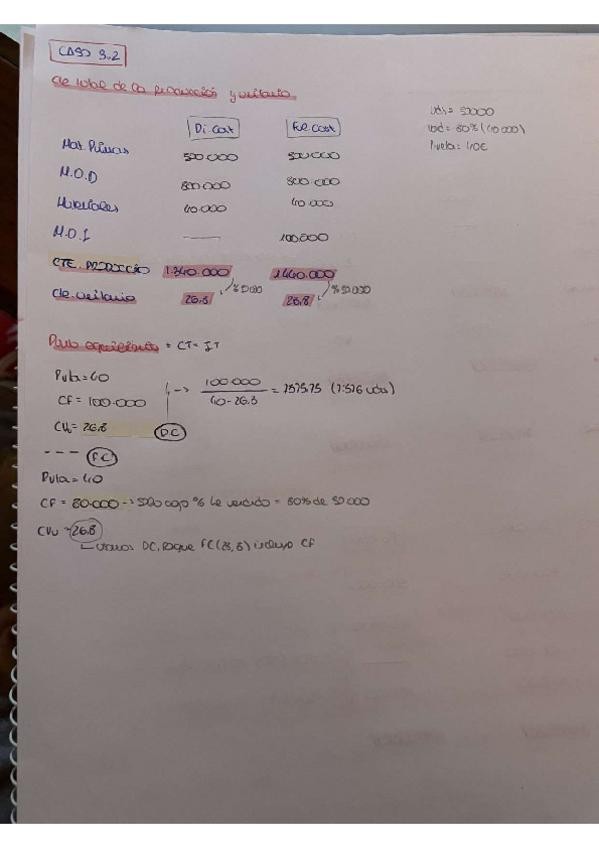 CASO 3.2
Cte total de la producción y unitario
Uds = 50000
Vtod = 80% (40 000)
Pventa = 40€
Di. Cost Ful. Cost
Mat. Primas 500 000 500 000
M.O.D 800 000 800.000
Materiales 40.000 40 000
M.O.I —— 100.000
CTE. PRODUCCIÓN 1.340.000 1.440.000
Cte. unitario 26.8 % 50.000 28,8 % 50.000
Punto equilibrio = CT = IT
Pvta = 40
CF = 100.000
CVu = 26.8
DC
--> 100.000 / 40-26.8 = 7575.75 (7.576 uds)
--- FC
Pvta = 40
CF = 80.000 -> solo cojo % de vendido = 80% de 50 000
CVu = 26.8
Usamos DC, porque FC (28,8) incluye CF